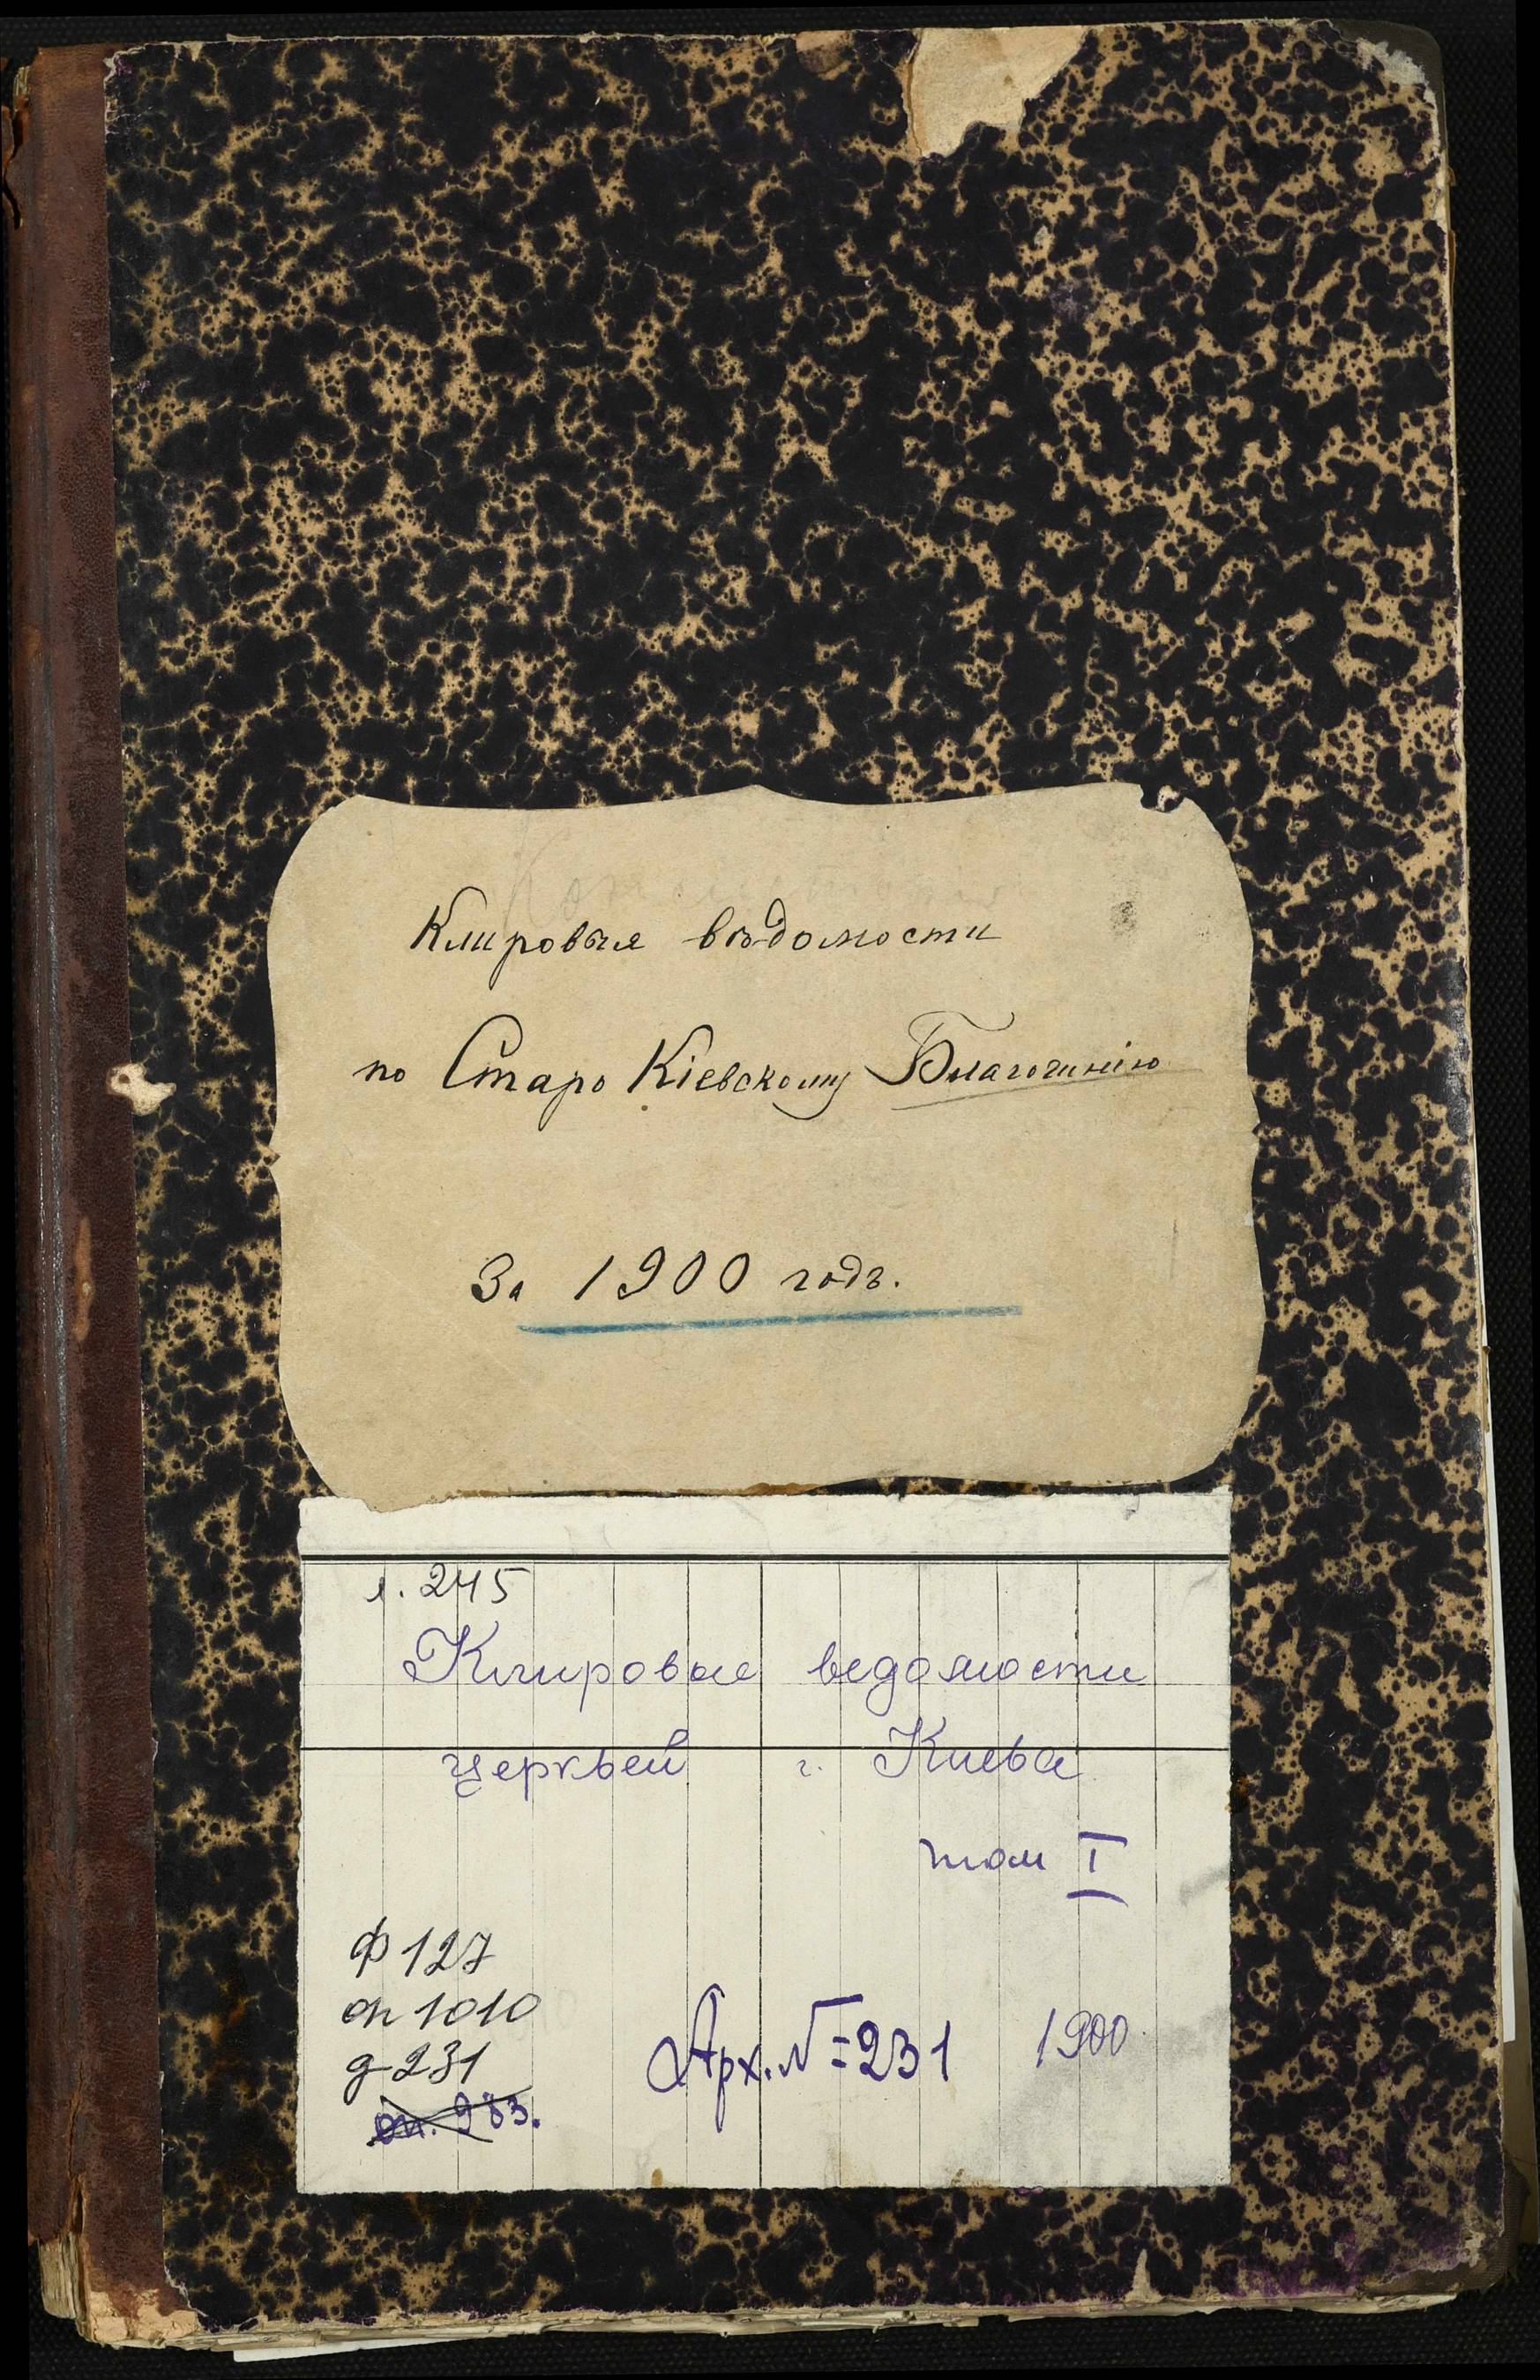 Клировыя вѣдомости
по Старо Кіевскому Благочинію
За 1900 годъ.
л. 245
Клировые ведомости
церквей г. Киева
том I
Ф 127
оп 1010
д 231
Арх. № 231 1900
оп. 983.